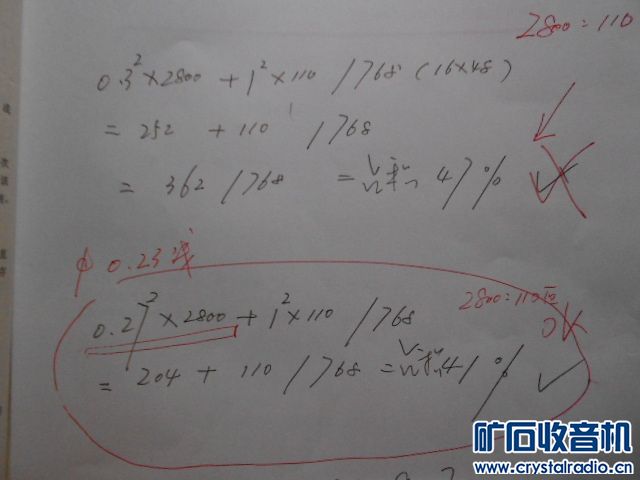 2800=110
0.3²×2800+1²×110/768(16×48)
=252+110/768
=362/768=47%
φ0.23线
2800=110匝
OK
0.27²×2800+1²×110/768
=204+110/768=41%
矿石收音机
www.crystalradio.cn